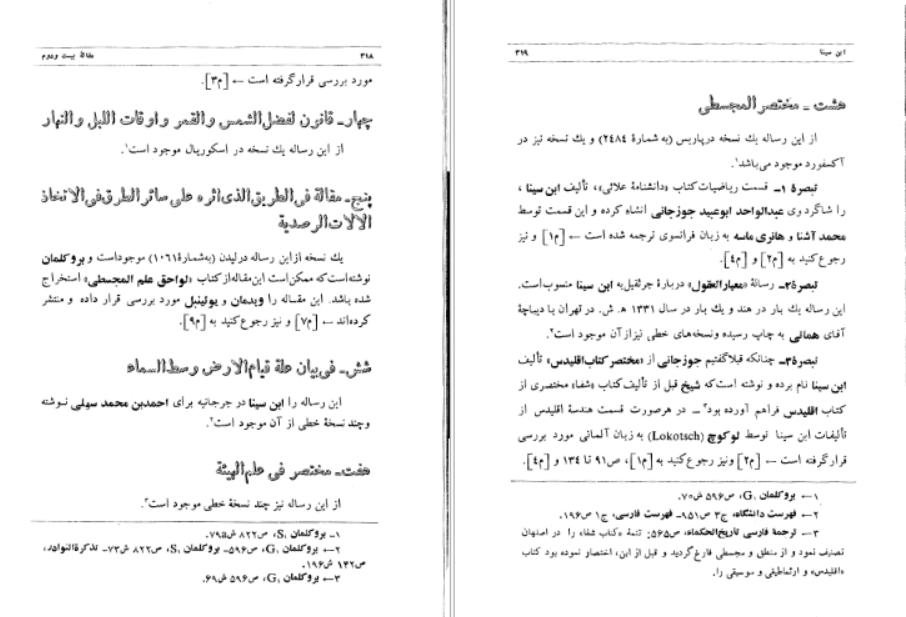 ۳۱۸
مقالهٔ بیست و دوم
مورد بررسی قرارگرفته است ← [م۳].
چهار- قانون لفضل الشمس والقمر و اوقات اللیل والنهار
از این رساله یك نسخه در اسکوریال موجود است۱.
پنج- مقالة فی الطریق الذی اثره علی سائر الطرق فی الاتخاذ
الالات الرصدیة
یك نسخه از این رساله در لیدن (به شمارهٔ ۱۰۶۱) موجود است و بروکلمان
نوشته است که ممکن است این مقاله از کتاب «لواحق علم المجسطی» استخراج
شده باشد. این مقاله را ویدمان و یوئینبل مورد بررسی قرار داده و منتشر
کرده‌اند ← [م۷] و نیز رجوع کنید به [م۹].
شش- فی بیان علة قیام الارض وسط السماء
این رساله را ابن سینا در جرجانیه برای احمدبن محمد سهلی نوشته
وچند نسخهٔ خطی از آن موجود است۲.
هفت- مختصر فی علم الهیئة
از این رساله نیز چند نسخهٔ خطی موجود است۳.
۱- بروکلمان S₁، ص۸۲۲ ش۷۹a.
۲-← بروکلمان G₁، ص۵۹۶- بروکلمان S₁، ص۸۲۲ ش۷۳- تذکرةالنوادر،
ص۱۴۲ ش۱۹۶.
۳-← بروکلمان G₁، ص۵۹۶ ش۶۹.
ابن سینا
۳۱۹
هشت - مختصر المجسطی
از این رساله یك نسخه درپاریس (به شمارهٔ ۲۴۸۴) و یك نسخه نیز در
آکسفورد موجود می‌باشد۱.
تبصرهٔ ۱- قسمت ریاضیات کتاب «دانشنامهٔ علائی»، تألیف ابن سینا،
را شاگرد وی عبدالواحد ابوعبید جوزجانی انشاء کرده و این قسمت توسط
محمد آشنا و هانری ماسه به زبان فرانسوی ترجمه شده است ← [م۱] و نیز
رجوع کنید به [م۲] و [م۴].
تبصرهٔ۲- رسالهٔ «معیارالعقول» دربارهٔ جرثقیل به ابن سینا منسوب است.
این رساله یك بار در هند و یك بار در سال ۱۳۳۱ ه‍. ش. در تهران با دیباچهٔ
آقای همائی به چاپ رسیده ونسخه‌های خطی نیز از آن موجود است۲.
تبصرهٔ۳- چنانکه قبلا گفتیم جوزجانی از «مختصر کتاب اقلیدس» تألیف
ابن سینا نام برده و نوشته است که شیخ قبل از تألیف کتاب «شفا» مختصری از
کتاب اقلیدس فراهم آورده بود۳ - در هرصورت قسمت هندسهٔ اقلیدس از
تألیفات ابن سینا توسط لوکوچ (Lokotsch) به زبان آلمانی مورد بررسی
قرارگرفته است ← [م۲] ونیز رجوع کنید به [م۱]، ص۹۱ تا ۱۳۴ و [م۴].
۱-← بروکلمان G₁، ص۵۹۶ ش۷۰.
۲-← فهرست دانشگاه، ج۳ ص۹۵۱- فهرست فارسی، ج۱ ص۱۹۶.
۳-← ترجمهٔ فارسی تاریخ‌الحکماء، ص۵۶۵: تتمهٔ «کتاب شفا» را در اصفهان
تصنیف نمود و از منطق و مجسطی فارغ گردید و قبل از این، اختصار نموده بود کتاب
«اقلیدس» و ارثماطیقی و موسیقی را.